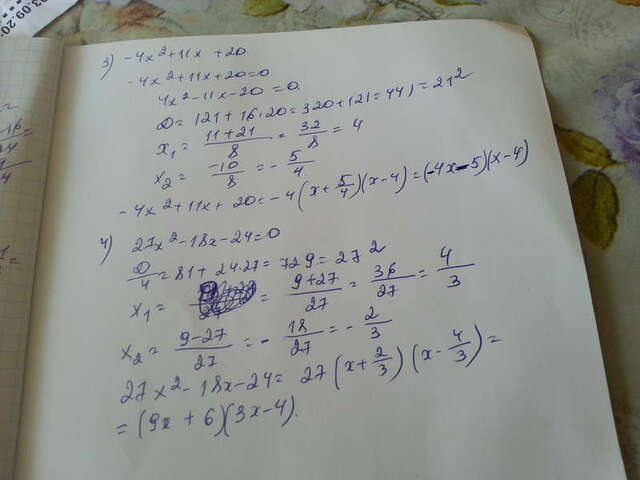 03.09.20
3) -4x²+11x+20
-4x²+11x+20=0
4x²-11x-20=0.
D=121+16·20=320+121=441=21²
x₁= (11+21)/8 = 32/8 = 4
x₂= -10/8 = - 5/4.
-4x²+11x+20=-4(x+5/4)(x-4)=(-4x-5)(x-4)
4) 27x²-18x-24=0
D/4=81+24·27=729=27²
x₁= = (9+27)/27 = 36/27 = 4/3
x₂= (9-27)/27 = - 18/27 = - 2/3
27x²-18x-24= 27(x+2/3)(x-4/3)=
=(9x+6)(3x-4).